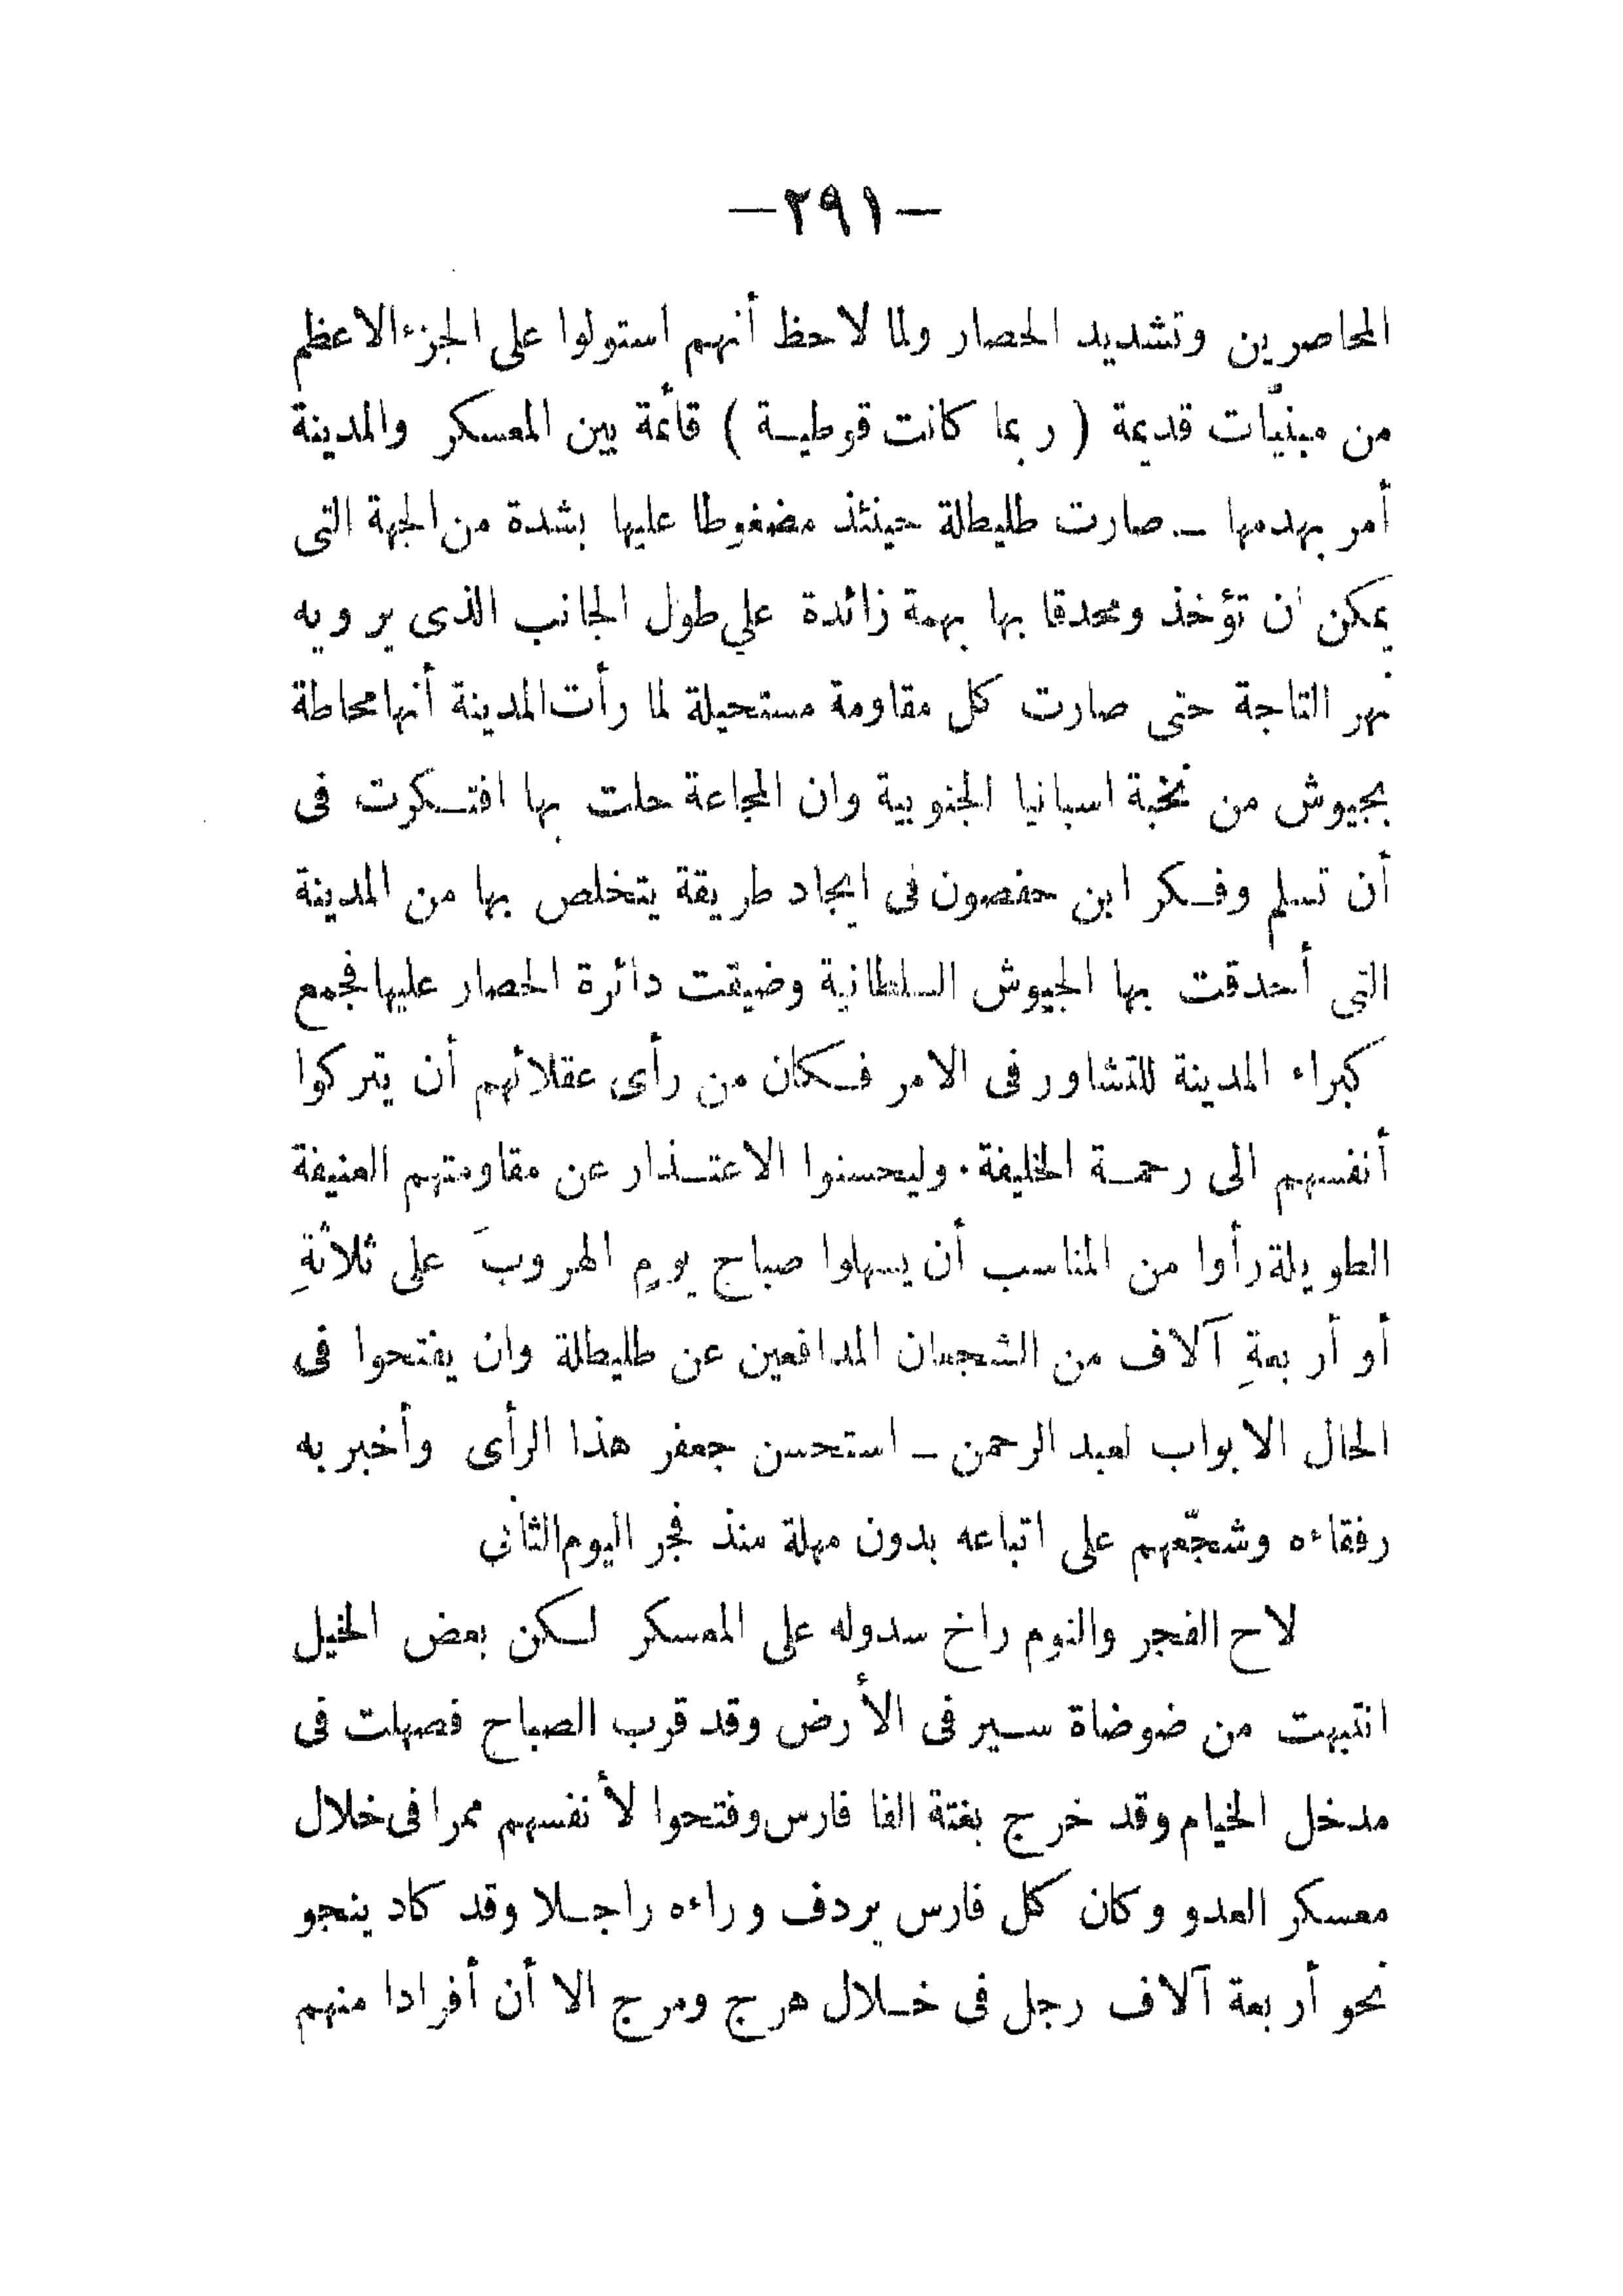 —٢٩١—
المحاصرين وتشديد الحصار ولما لاحظ أنهم استولوا على الجزء الاعظم
من مبنيّات قديمة ( ربما كانت قوطيـة ) قائمة بين المعسكر والمدينة
أمر بهدمها ـ صارت طليطلة حينئذ مضغوطا عليها بشدة من الجهة التى
يمكن ان تؤخذ ومحدقا بها بهمة زائدة على طول الجانب الذى يرويه
نهر التاجة حتى صارت كل مقاومة مستحيلة لما رأت المدينة أنها محاطة
بجيوش من نخبة اسبانيا الجنوبية وان المجاعة حلت بها افتـكرت فى
أن تسلم وفـكر ابن حفصون فى ايجاد طريقة يتخلص بها من المدينة
التى أحدقت بها الجيوش السلطانية وضيقت دائرة الحصار عليها فجمع
كبراء المدينة للتشاور فى الامر فـكان من رأى عقلائهم أن يتركوا
أنفسهم الى رحمـة الخليفة. وليحسنوا الاعتـذار عن مقاومتهم العنيفة
الطويلة رأوا من المناسب أن يسهلوا صباح يومٍ الهروبَ على ثلاثةِ
أو أربعةِ آلاف من الشجعان المدافعين عن طليطلة وان يفتحوا فى
الحال الابواب لعبد الرحمن ـ استحسن جعفر هذا الرأى وأخبر به
رفقاءه وشجّعهم على اتباعه بدون مهلة منذ فجر اليوم الثانى
لاح الفجر والنوم راخ سدوله على المعسكر لـكن بعض الخيل
انتبهت من ضوضاة سـير فى الأرض وقد قرب الصباح فصهلت فى
مدخل الخيام وقد خرج بغتة الفا فارس وفتحوا لأنفسهم ممرا فى خلال
معسكر العدو وكان كل فارس يردف وراءه راجـلا وقد كاد ينجو
نحو أربعة آلاف رجل فى خـلال هرج ومرج الا أن أفرادا منهم